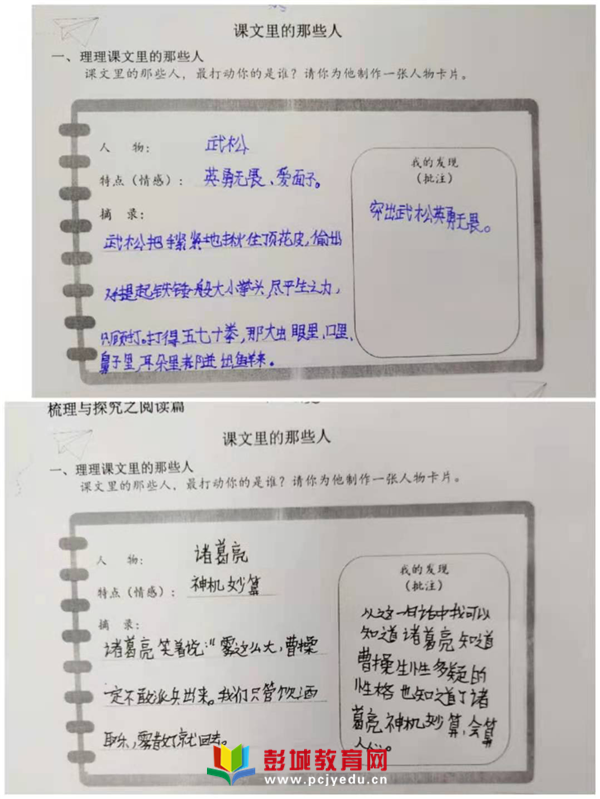 课文里的那些人
一、理理课文里的那些人
课文里的那些人，最打动你的是谁？请你为他制作一张人物卡片。
人 物： 武松
特点（情感）： 英勇无畏、爱面子。
摘 录：
武松把手紧紧地揪住顶花皮，偷出
提起铁锤般大小拳头，尽平生之力，
只顾打。打得五七十拳，那大虫眼里、口里、
鼻子里，耳朵里都迸出鲜来。
我的发现
（批注）
突出武松英勇无畏。
梳理与探究之阅读篇
课文里的那些人
一、理理课文里的那些人
课文里的那些人，最打动你的是谁？请你为他制作一张人物卡片。
人 物： 诸葛亮
特点（情感）： 神机妙算
摘 录：
诸葛亮笑着说：“雾这么大，曹操
一定不敢派兵出来。我们只管饮酒
取乐，雾散了就回去。
我的发现
（批注）
从这一句话中我可以
知道诸葛亮知道
曹操生性多疑的
性格也知道了诸
葛亮神机妙算，会算
人心。
彭城教育网
www.pcjyedu.cn